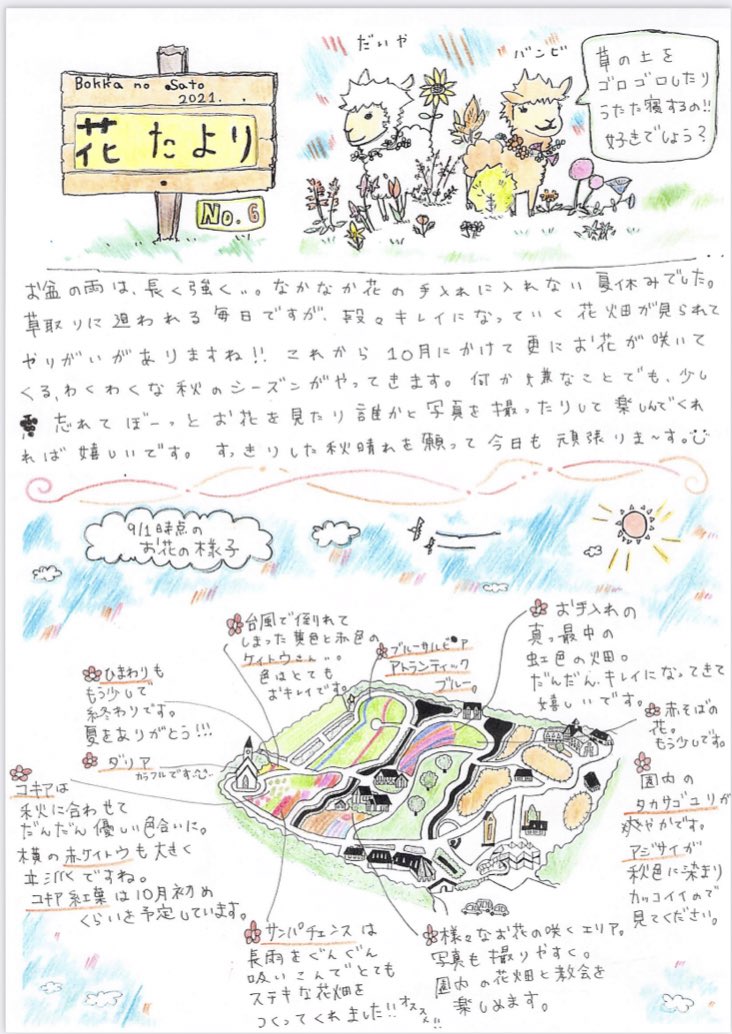 Bokka no Sato
2021.
花たより
No.6
だいや
バンビ
草の土を
ゴロゴロしたり
うたた寝するの!!
好きでしょう?
お盆の雨は、長く強く…。なかなか花の手入れに入れない夏休みでした。
草取りに追われる毎日ですが、段々キレイになっていく花畑が見られて
やりがいがありますね!! これから10月にかけて更にお花が咲いて
くる、わくわくな秋のシーズンがやってきます。何か嫌なことでも、少し
忘れてぼーっとお花を見たり誰かと写真を撮ったりして楽しんでくれ
れば嬉しいです。すっきりした秋晴れを願って今日も頑張りま〜す。
9/1時点の
お花の様子
台風で倒れて
しまった黄色と赤色の
ケイトウさん…。
色はとても
おキレイです。
ブルーサルビア
アトランティック
ブルー。
お手入れの
真っ最中の
虹色の畑。
だんだんキレイになってきて
嬉しいです。
ひまわりも
もう少しで
終わりです。
夏をありがとう!!!
赤そばの
花。
もう少しです。
ダリア
カラフルです
コキアは
秋に合わせて
だんだん優しい色合いに。
横の赤ケイトウも大きく
立派ですね。
コキア紅葉は10月初め
くらいを予定しています。
園内の
タカサゴユリが
爽やかです。
アジサイが
秋色に染まり
カッコイイので
見てください。
サンパチェンスは
長雨をぐんぐん
吸いこんでとても
ステキな花畑を
つくってくれました!!オススメ!!
様々なお花の咲くエリア。
写真も撮りやすく。
園内の花畑と教会を
楽しめます。